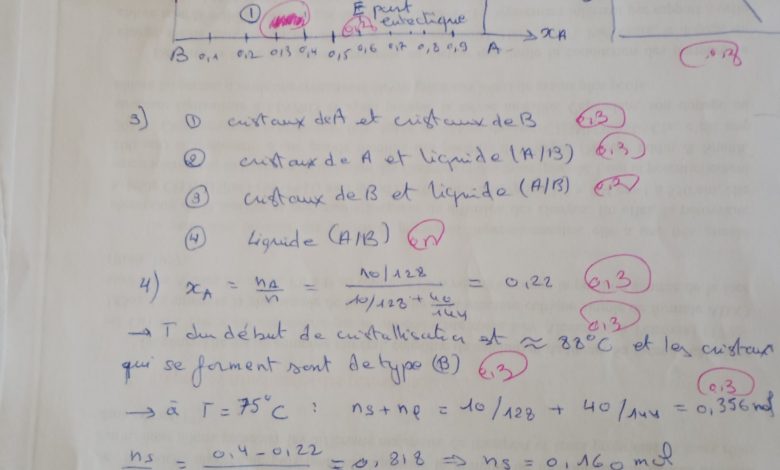 ① E point
eutectique
0,2
B 0,1 0,2 0,3 0,4 0,5 0,6 0,7 0,8 0,9 A xA
3) ① cristaux de A et cristaux de B 0,3
② cristaux de A et liquide (A/B) 0,3
③ cristaux de B et liquide (A/B)
④ Liquide (A/B)
4) xA = nA/n = 10/128 / 10/128 + 40/144 = 0,22 0,3
0,3
→ T du début de cristallisation est ≈ 88°C et les cristaux
qui se forment sont de type (B) 0,3
0,3
→ à T = 75°C : ns + nl = 10/128 + 40/144 = 0,356 mol
ns = 0,4 - 0,22 = 0,818 ⇒ ns = 0,160 mol